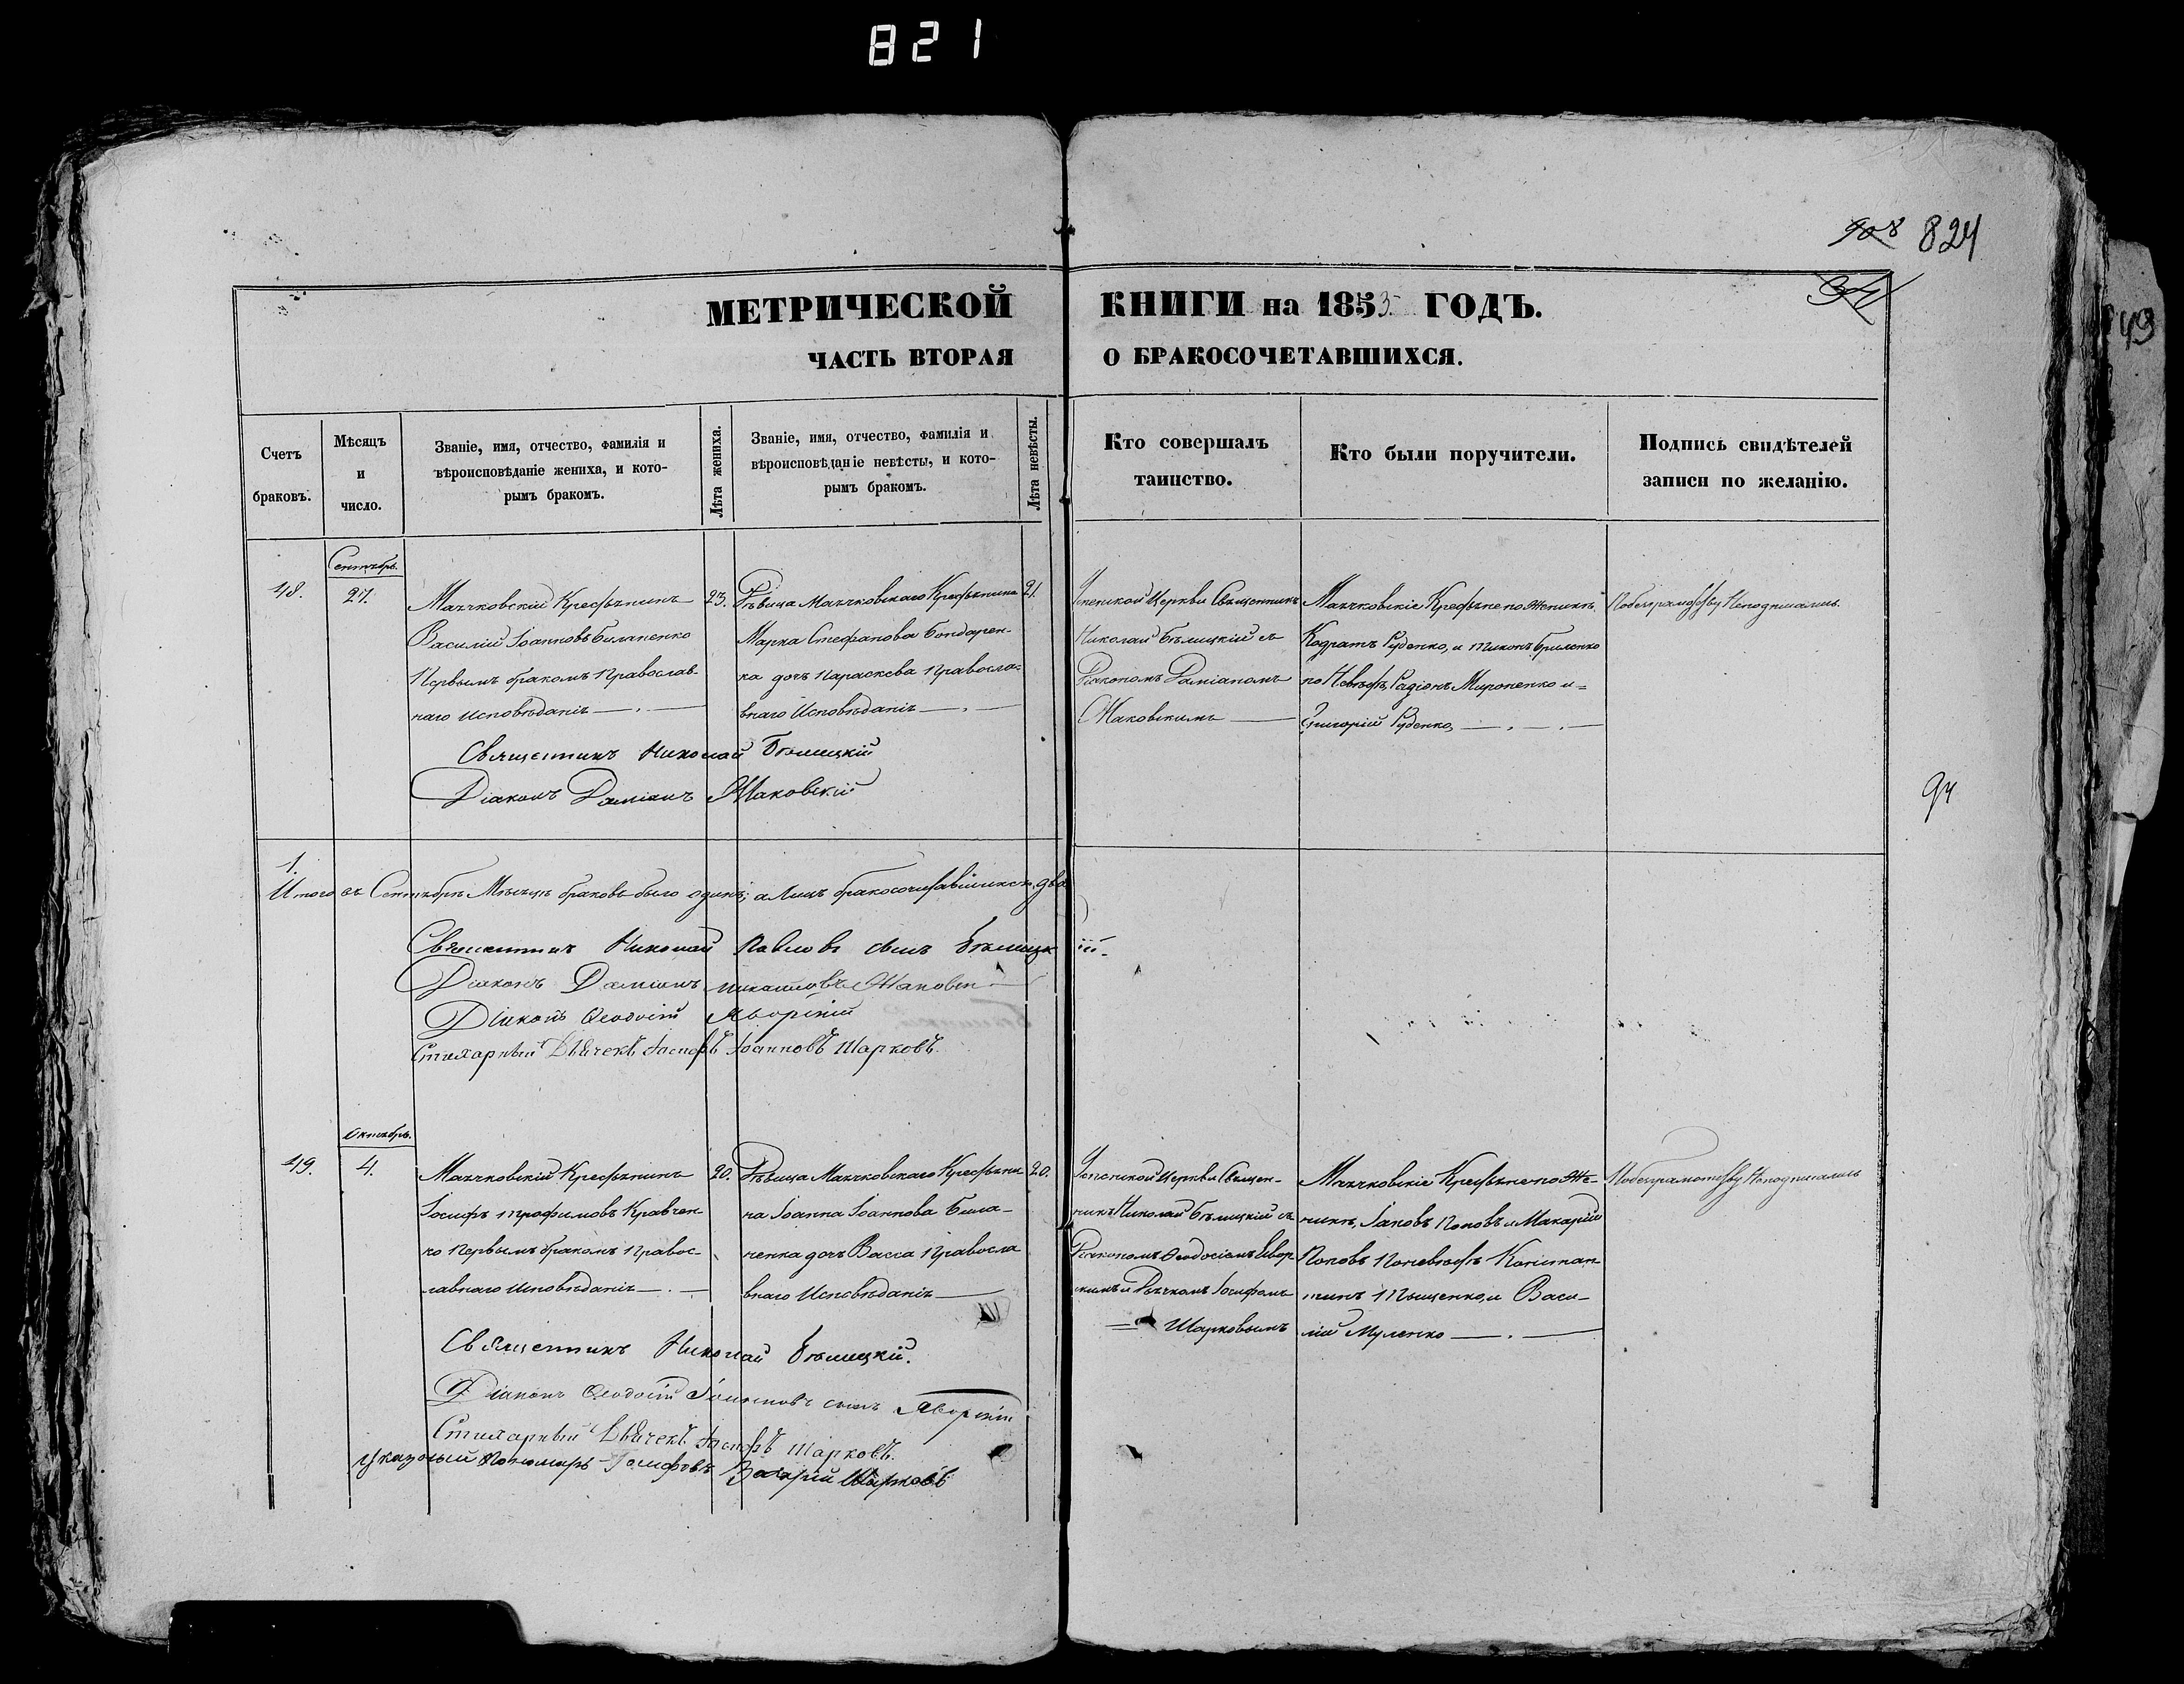 821
908 824
94
49
МЕТРИЧЕСКОЙ КНИГИ на 1853 ГОДЪ.
ЧАСТЬ ВТОРАЯ О БРАКОСОЧЕТАВШИХСЯ.
Счетъ браковъ.
Мѣсяцъ и число.
Званіе, имя, отчество, фамилія и
вѣроисповѣданіе жениха, и кото-
рымъ бракомъ.
Лѣта жениха.
Званіе, имя, отчество, фамилія и
вѣроисповѣданіе невѣсты, и кото-
рымъ бракомъ.
Лѣта невѣсты.
Кто совершалъ
таинство.
Кто были поручители.
Подпись свидѣтелей
записи по желанію.
Сентябрь.
48.
27.
Маячковскій Крестьянинъ
Василій Іоанновъ Биланенко
Первымъ бракомъ Православ-
наго Исповѣданія
23.
Дѣвица Маячковскаго Крестьянина
Марка Стефанова Бондарен-
ка дочь Параскева Правосла-
внаго Исповѣданія
21.
Успенской Церкви Священникъ
Николай Бѣлицкій съ
Діакономъ Даміаномъ
Маковскимъ
Маячковскіе Крестьяне по Женихѣ,
Кодратъ Руденко, и Тихонъ
по Невѣстѣ, Радіонъ Мироненко и
Григорій Руденко
По безграмотству Неподписались.
Священникъ Николай Бѣлицкій
Діаконъ Даміанъ Маковскій
94
1.
Итого въ Сентябрѣ Мѣсяцѣ браковъ было одинъ; а Лицъ бракосочетавшихся два
Священникъ Николай Павловъ сынъ Бѣлицкій.
Діаконъ Даміанъ
Діаконъ Ѳеодосій Яворскій
Стихарный Дьячекъ Іосифъ Іоанновъ Шарковъ.
Октябрь.
49.
4.
Маячковскій Крестьянинъ
Іосифъ Трофимовъ Кравчен-
ко Первымъ бракомъ Правос-
лавнаго Исповѣданія
20.
Дѣвица Маячковскаго Крестьяни-
на Іоанна Іоаннова Била-
ненка дочь Васса Правосла
внаго Исповѣданія
20.
Успенской Церкви Священ-
никъ Николай Бѣлицкій съ
Діакономъ Ѳеодосіемъ Явор
скимъ и Дьячкомъ Іосифомъ
Шарковымъ
Маячковскіе Крестьяне по Же-
нихѣ, Іаковъ Поповъ и Макарій
Поповъ По невѣстѣ Констан
тинъ Тыщенко, и Васи-
лій Муленко
По безграмотству Неподписались
Священникъ Николай Бѣлицкій.
Діаконъ Ѳеодосій Іоанновъ сынъ Яворскій
Стихарный Дьячекъ Іосифъ Шарковъ.
Указный Пономарь Іосифовъ Захарій Шарковъ